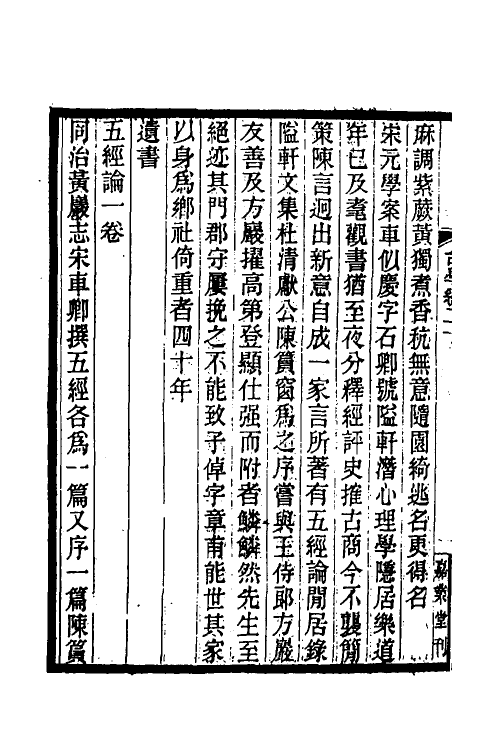 麻調紫蕨黃獨煮香秔無意隨園綺逃名更得名
宋元學案車似慶字石卿號隘軒潛心理學隱居樂道
年已及耄觀書猶至夜分釋經評史搉古商今不襲簡
策陳言迥出新意自成一家言所著有五經論閒居錄
隘軒文集杜清獻公陳篔窗爲之序嘗與王侍郎方巖
友善及方巖擢高第登顯仕强而附者鱗鱗然先生至
絕迹其門郡守屢挽之不能致子倬字章甫能世其家
以身爲鄉社倚重者四十年
遺書
五經論一卷
同治黃巖志宋車卿撰五經各爲一篇又序一篇陳篔
嘉業堂刊